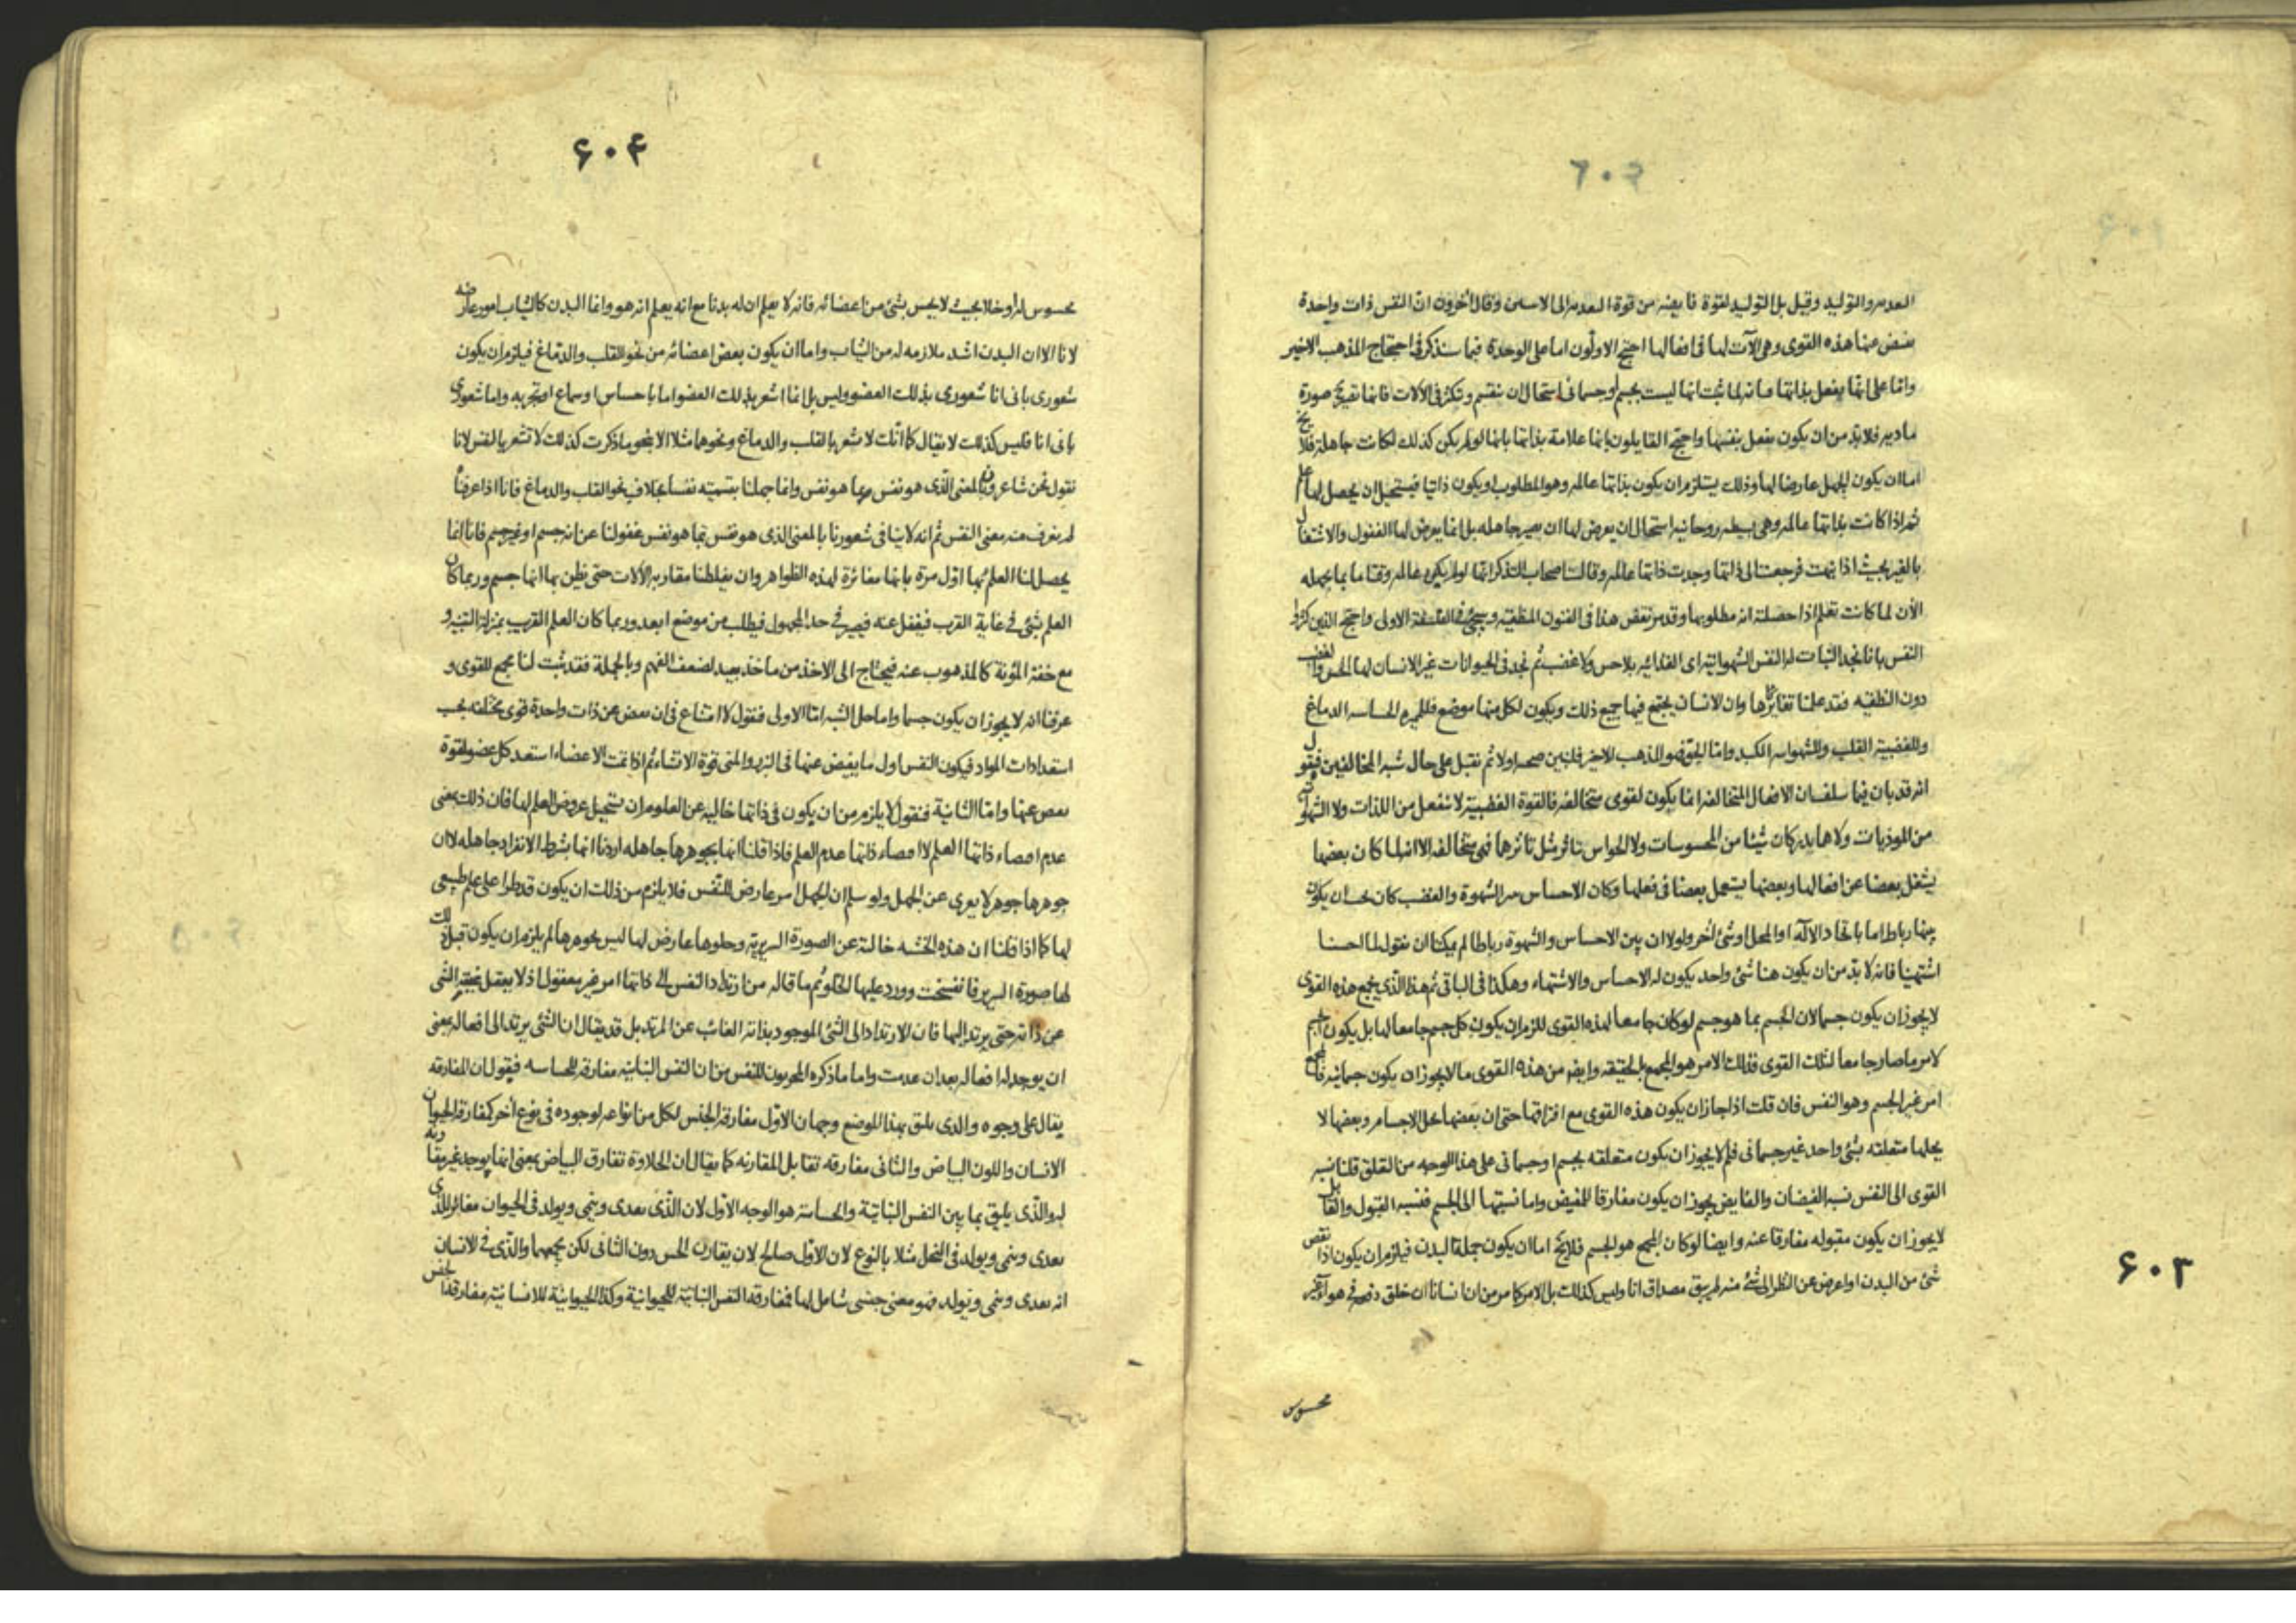 ٦٠٣
والتوليد وقيل بل التوليد لقوة من قوة الى وقال آخرون ان النفس ذات واحدة
عنها هذه القوى وهي آلات لها في افعالها احتج الاولون اما على الوحدة فبما سنذكر في احتجاج المذهب الاخير
واما على انها يفعل بذاتها لما ثبت انها ليست بجسم او جسماني استحال ان ينقسم ويتكثر في الآلات فانها صورة
ماديه فلا بد من ان يكون يفعل بنفسها واحتج القايلون بانها علامة بذاتها بانها لو لم يكن كذلك لكانت جاهلة فلا يخ
اما ان يكون الجهل عارضا لها وذلك يستلزم ان يكون بذاتها عالمه وهو المطلوب او يكون ذاتيا فيستحيل ان يحصل لها علم
ثم اذا كانت بذاتها عالمه وهي بسيطه روحانيه استحال ان يعرض لها ان يصير جاهله بل انما يعرض لها الغفول والاشتغال
بالغير بحيث اذا فرجعت الى ذاتها وجدت ذاتها عالمه وقالت اصحاب التذكر انها لو لم يكن عالمه وقتا ما بما يجهله
الآن لما كانت تعلم اذا حصلته انه مطلوبها وقد مر نقض هذا في الفنون المنطقيه وسيجئ في الفلسفة الاولى واحتج الذين كثروا
النفس بانا نجد النبات له النفس الشهوانية اى الغذائيه بلا حس ولا غضب ثم نجد في الحيوانات غير الانسان لها الحس والغضب
دون النطقيه فقد علمنا تغايرها وان الانسان يجتمع فيها جميع ذلك ويكون لكل منها موضع الحاسه الدماغ
وللغضبية القلب وللشهوانيه الكبد واما الحق فهو المذهب الاخير فلنبين صحته اولا ثم نقبل على حال شبه المخالفين فنقول
انه قد بان فيما سلف ان الافعال المتخالفه انما يكون لقوى متخالفه فالقوة الغضبية لا تنفعل من اللذات ولا الشهوانية
من الموذيات ولا هما يدركان شيئا من المحسوسات ولا الحواس تتاثر مثل تاثرها فهي متخالفه الا انه لما كان بعضها
يشغل بعضا عن افعالها وبعضها يستعمل بعضا في فعلها وكان الاحساس الشهوة والغضب كان يكون
بينها رباط اما باتحاد الآلة او المحل او شئ آخر ولولا ان بين الاحساس والشهوة رباطا لم يمكنا ان نقول لما احسسنا
اشتهينا فانه لا بد من ان يكون هنا شئ واحد يكون له الاحساس والاشتهاء وهكذا في الباقي ثم هذا الذى يجمع هذه القوى
لا يجوز ان يكون جسما لان الجسم بما هو جسم لو كان جامعا لهذه القوى للزم ان يكون كل جسم جامعا لها بل يكون الجسم
لامر ما صار جامعا لتلك القوى فذلك الامر هو المجمع بالحقيقه وايضا من هذه القوى ما لا يجوز ان يكون جسمانيه فالمجمع
امر غير الجسم وهو النفس فان قلت اذا جاز ان يكون هذه القوى مع افتراقها حتى ان بعضها يحل الاجسام وبعضها لا
يحلها متعلقه بشئ واحد غير جسماني فلم لا يجوز ان يكون متعلقه بجسم او جسماني على هذا الوجه من التعلق قلنا نسبه
القوى الى النفس نسبه الفيضان والفايض يجوز ان يكون مفارقا للمفيض واما نسبتها الى الجسم فنسبه القبول والقابل
لا يجوز ان يكون مقبوله مفارقا عنه وايضا لو كان المجمع هو الجسم فلا يخ اما ان يكون جملة البدن فيلزم ان يكون اذا نقص
شئ من البدن او اعرض عن النظر الى شئ منه لم يبق مصداق انا وليس كذلك بل الامر كما مر من ان انسانا ان خلق دفعه في هواء غير
محسوس
٦٠٣
۶۰۴
محسوس له او خلا بحيث لا يحس بشئ من اعضائه فانه لا يعلم ان له بدنا مع انه يعلم انه هو وانما البدن كالثياب امور عارضه
لانا الا ان البدن اشد ملازمه له من الثياب واما ان يكون بعض اعضائه من نحو القلب والدماغ فيلزم ان يكون
شعورى باني انا شعورى بذلك العضو وليس بل انما اشعر بذلك العضو اما باحساس او سماع او تجربه واما شعورى
باني انا فليس كذلك لا يقال كما انك لا تشعر بالقلب والدماغ ونحوهما مثلا الا بنحو ما ذكرت كذلك لا تشعر بالنفس لانا
نقول نحن شاعرون بالمعنى الذى هو نفس بما هو نفس وانما جهلنا بتسميته نفسا بخلاف نحو القلب والدماغ فانا اذا عرفناه
لم نعرف منه معنى النفس ثم انه لا ينافى شعورنا بالمعنى الذى هو نفس بما هو نفس غفولنا عن انه جسم او غير جسم فانا انما
يحصل لنا العلم بها اول مرة بانها مغائرة لهذه الظواهر وان يغلطنا مقاربه الآلات حتى يظن بها انها جسم وربما كان
العلم بشئ في غاية القرب فيغفل عنه فيصير في حد المجهول فيطلب من موضع ابعد وربما كان العلم القريب بمنزلة التنبيه و
مع خفة المؤنة كالمذهوب عنه فيحتاج الى الاخذ من ماخذ بعيد لضعف الفهم وبالجملة فقد ثبت لنا مجمع للقوى و
عرفنا انه لا يجوز ان يكون جسما واما حل الشبه اما الاولى فنقول لا امتناع في ان عن ذات واحدة قوى مختلفه بحسب
استعدادات المواد فيكون النفس اول ما يفيض عنها في البزر والمنى قوة الانشاء ثم اذا تمت الاعضاء استعد كل عضو لقوة
عنها واما الثانية فنقول لا يلزم من ان يكون في ذاتها خاليه عن العلوم ان يستحيل عروض العلم لها فان ذلك يعنى
عدم اقتضاء ذاتها العلم لا اقتضاء ذاتها عدم العلم فاذا قلنا انها بجوهرها جاهله اردنا انها بشرط الانفراد جاهله لا ان
جوهرها جوهر لا يعرى عن الجهل ولو سلم ان الجهل امر عارض للنفس فلا يلزم من ذلك ان يكون قد طرا على علم طبيعى
لها كما اذا قلنا ان هذه الخشبه خالية عن الصورة السريرية وخلوها عارض لها ليس بجوهرها لم يلزم ان يكون قبل ذلك
لها صورة السرير فانفسخت وورد عليها الخلو ثم ما قاله من ارتداد النفس الى ذاتها امر غير معقول اذ لا يعقل غيبة الشئ
عن ذاته حتى يرتد اليها فان الارتداد الى الشئ الموجود بذاته الغائب عن المرتد بل قد يقال ان الشئ يرتد الى افعاله يعنى
ان يوجد له افعاله بعد ان عدمت واما ما ذكره للنفس من ان النفس النباتيه مفارقه للحساسه فيقول ان المفارقه
يقال على وجوه والذى يليق بهذا الموضع وجهان الاول مفارقه الجنس لكل من انواعه لوجوده في نوع آخر كمفارقه الحيوان
الانسان واللون البياض والثاني مفارقه تقابل المقارنه كما يقال ان الحلاوة تفارق البياض بمعنى انها يوجد غير مقارنه
له والذى يليق بما بين النفس النباتية والحساسة هو الوجه الاول لان الذى يغذى وينمى ويولد في الحيوان مغائر للذى
يغذى وينمى ويولد في النخل مثلا بالنوع لان الاول صالح لان يقارن الحس دون الثاني لكن يجمعهما والذى في الانسان
انه يغذى وينمى ويولد فهو معنى جنسى شامل لها فمفارقه النفس النباتيه للحيوانية وكذا الحيوانية للانسانية مفارقه الجنس